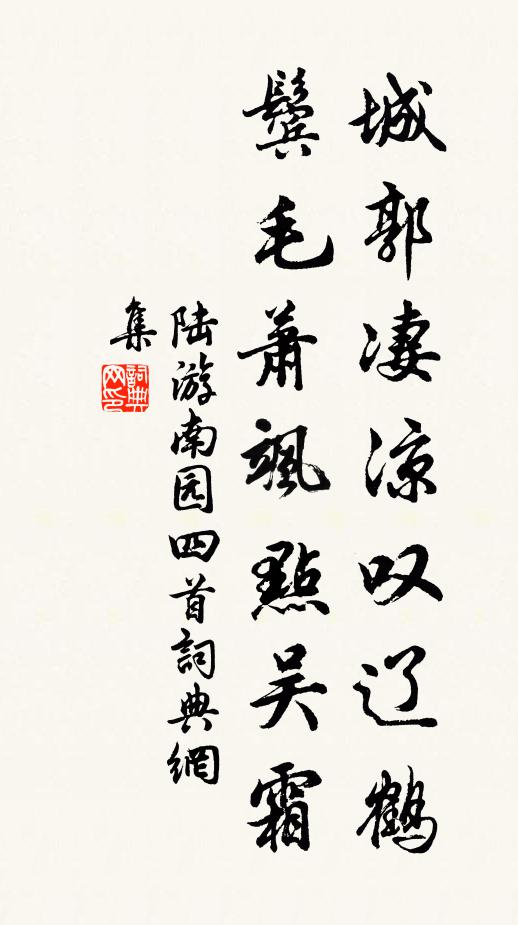 城郭凄凉叹辽鹤
鬓毛萧飒點吴霜
陆游南园四首詞典網
集
詞典
网印